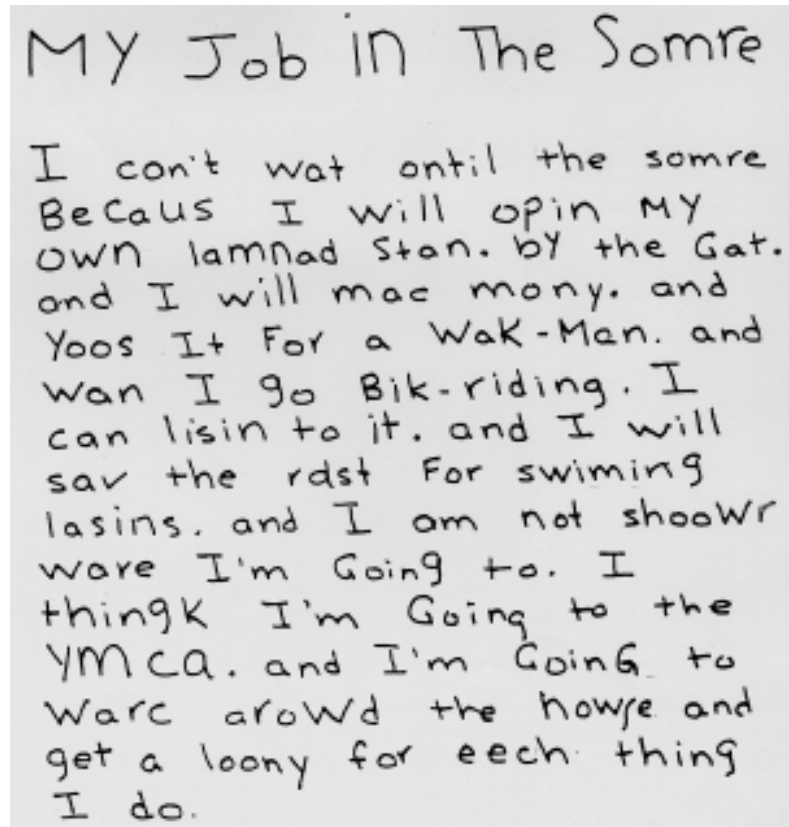 My Job in The Somre
I con't wat ontil the somre
BeCaus I will opin My
own lamnad Stan. by the Gat.
and I will mac mony. and
Yoos It For a Wak-Man. and
wan I go Bik-riding. I
can lisin to it. and I will
sav the rast For swiming
lasins. and I am not shoowr
ware I'm Going to. I
thingk I'm Going to the
YMCA. and I'm GoinG to
warc arowd the howse and
get a loony for eech thing
I do.